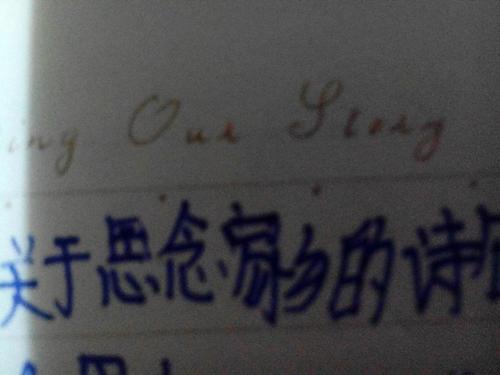 ing Our Story
关于思念家乡的诗